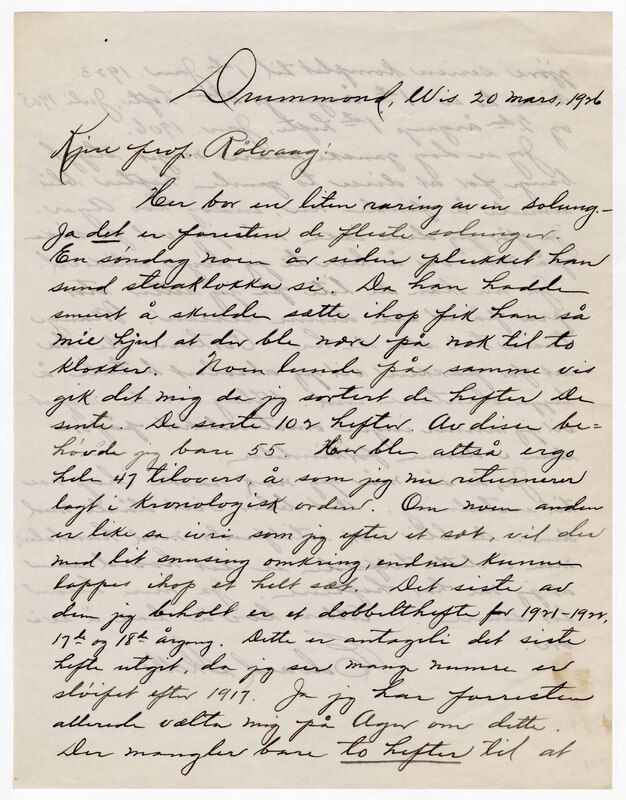 Drummond, Wis 20 mars, 1926
Kjere prof. Rölvaag!
Her bor en liten raring av en solung.-
Ja det er foresten de fleste solunger.
En söndag noen år siden plukket han
sund stuaklokka si. Da han hadde
smurt å skulde sætte ihop fik han så
mie hjul at der ble nære på nok til to
klokker. Noen lunde på samme vis
gik det mig da jeg sortert de hefter De
sente. De sente 102 hefter. Av disse be=
hövde jeg bare 55. Her ble altså ergo
hele 47 tilovers, å som jeg nu returnerer
lagt i kronologisk orden. Om noen anden
er like så ivri som jeg efter et sæt, vil der
med litt snusing omkring, endnu kunne
loppes ihop et helt sæt. Det siste av
dem jeg beholt er et dobbelthefte for 1921-1922,
17de og 18de årgang. Dette er antageli det siste
hefte utgit, da jeg ser mange numre er
slöifet efter 1917. Ja jeg har forresten
allerede vælta mig på Ager om dette.
Der mangler bare to hefter til at